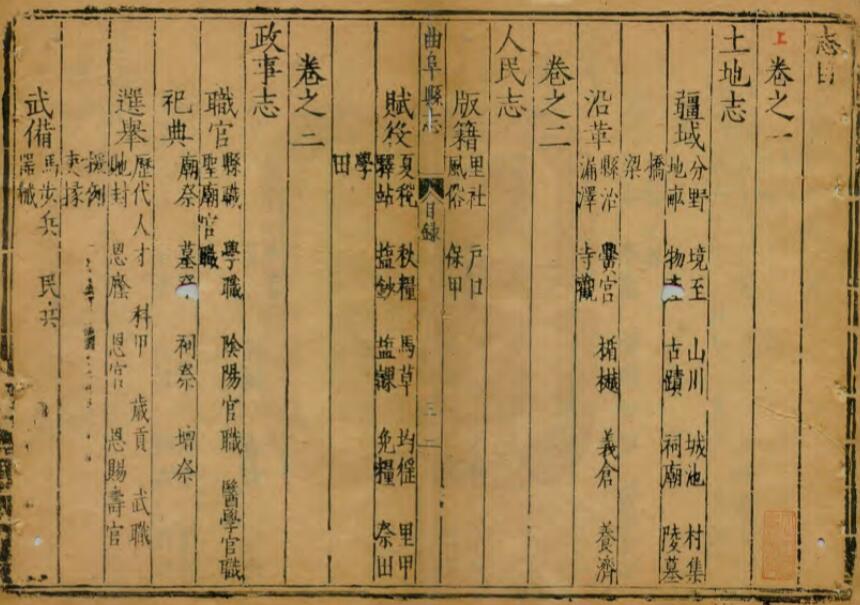 志目
上
卷之一
土地志
疆域
分野 境至 山川 城池 村集
地畝 物産 古蹟 祠廟 陵墓
橋
梁
沿革
縣治 黌宮 楯樾 義倉 養濟
漏澤 寺觀
卷之二
人民志
版籍
里社 戸口
風俗 保甲
曲阜縣志
目錄
賦役
夏稅 秋糧 馬草 均徭 里甲
驛站 塩鈔 塩課 免糧 祭田
學
田
卷之二
政事志
職官
縣職 學職 陰陽官職 醫學官職
聖廟官職
祀典
廟祭 墓祭 祠祭 增祭
選舉
歷代人才 科甲 歲貢 武職
馳封 恩廕 恩官 恩賜壽官
援例
吏掾
武備
馬步兵 民兵
器械